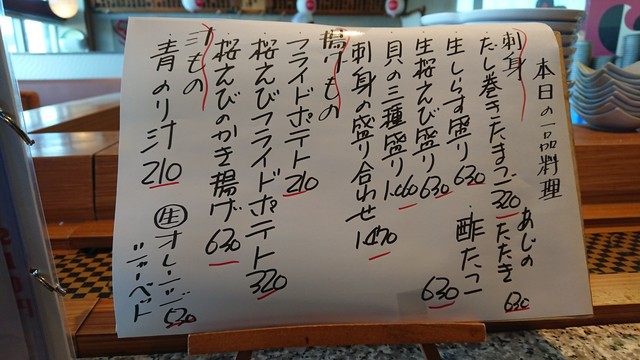 本日の一品料理
刺身
だし巻きたまご 320
生しらす盛り 630
生桜えび盛り 630
貝の三種盛り 1060
刺身の盛り合わせ 1470
あじのたたき 630
酢たこ 630
揚げもの
フライドポテト 210
桜えびフライドポテト 320
桜えびのかき揚げ 630
汁もの
青のり汁 210
生オレンジシャーベット 620